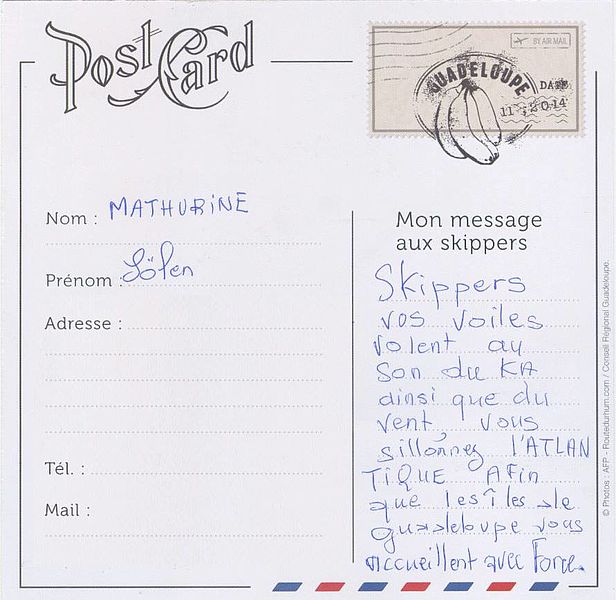 Post Card
BY AIR MAIL
GUADELOUPE
DATE
11 2014
Nom : MATHURINE
Prénom : Sölen
Adresse :
Tél. :
Mail :
Mon message
aux skippers
Skippers
vos voiles
volent au
son du KA
ainsi que du
vent, vous
sillonnez l'ATLAN
TIQUE AFin
que les îles de
guadeloupe vous
accueillent avec Force.
© Photos : AFP - Routedurhum.com / Conseil Régional Guadeloupe.